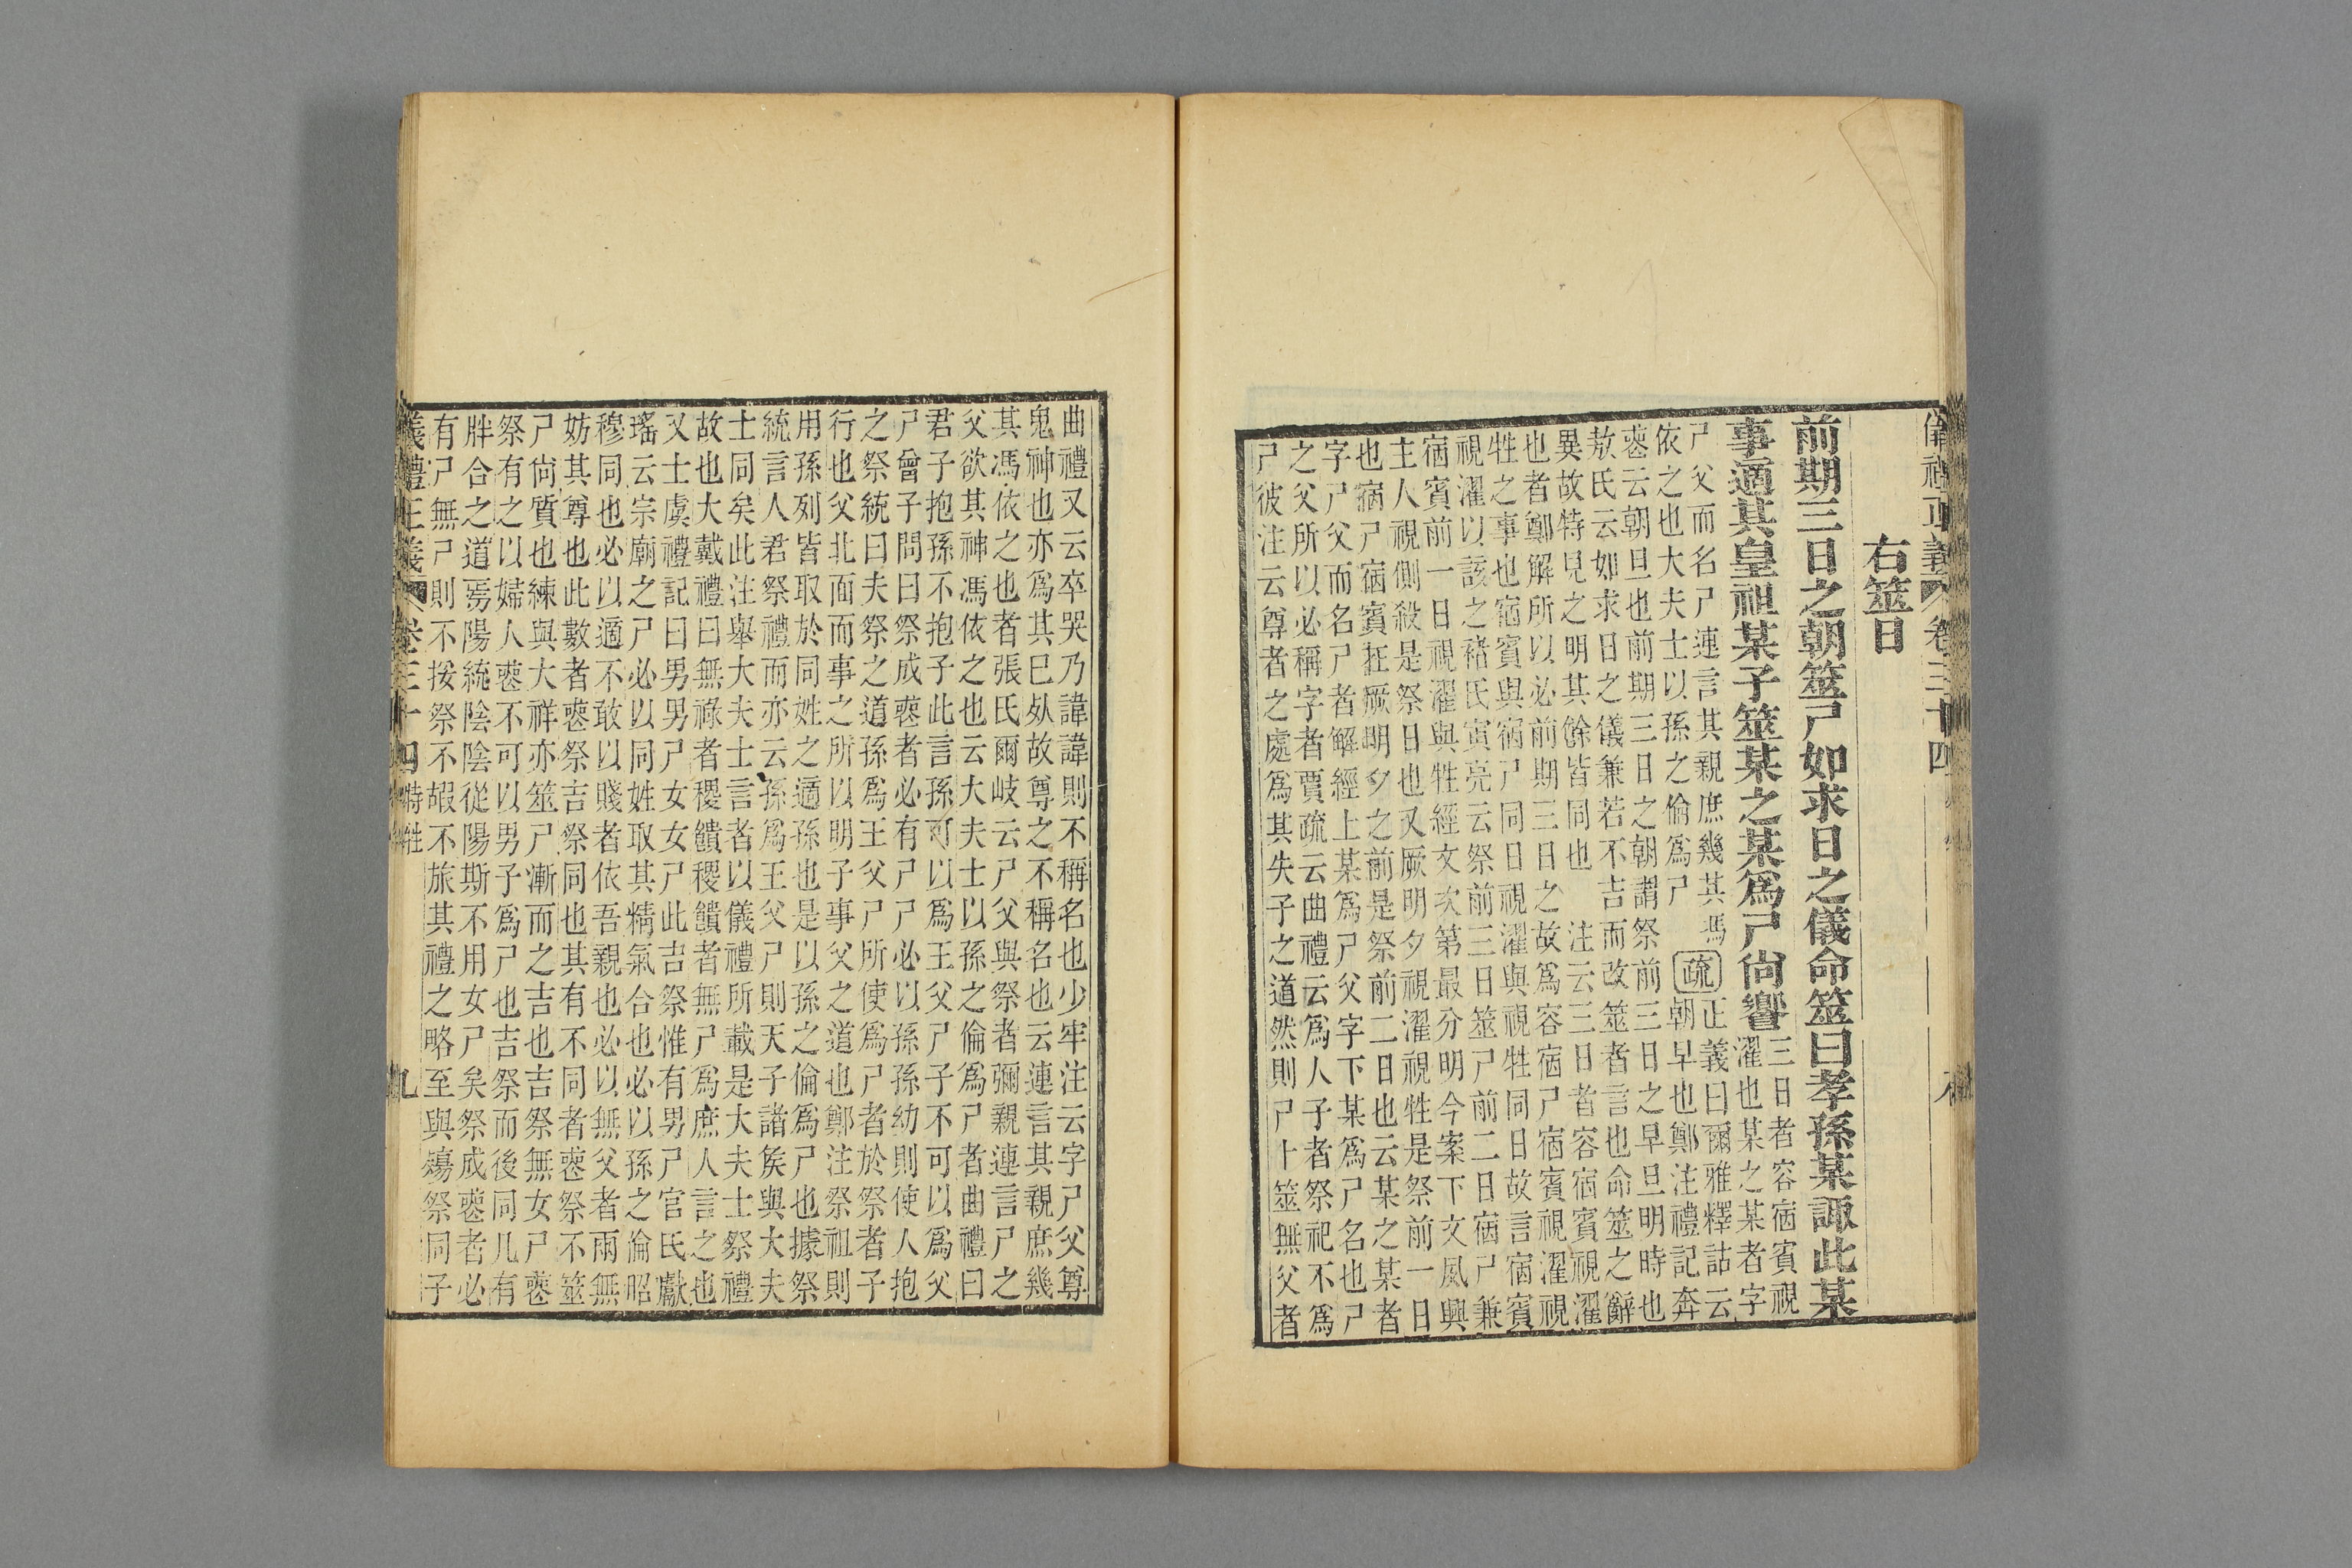 儀禮正義 卷三十四
右筮日
前期三日之朝筮尸如求日之儀命筮曰孝孫某諏此某
事適其皇祖某子筮某之某爲尸尙饗
三日者容宿賓視
濯也某之某者字
尸父而名尸連言其親庶幾其馮
依之也大夫士以孫之倫爲尸
疏
正義曰爾雅釋詁云
朝早也鄭注禮記奔
喪云朝旦也前期三日之朝謂祭前三日之早旦明時也
敖氏云如求日之儀兼若不吉而改筮者言也命筮之辭
異故特見之明其餘皆同也 注云三日者容宿賓視濯
也者鄭解所以必前期三日之故爲容宿尸宿賓視濯視
牲之事也宿賓與宿尸同日視濯與視牲同日故言宿賓
視濯以該之褚氏寅亮云祭前三日筮尸前二日宿尸兼
宿賓前一日視濯與牲經文次第最分明今案下文夙興
主人視側殺是祭日也又厥明夕視濯視牲是祭前一日
也宿尸宿賓在厥明夕之前是祭前二日也云某之某者
字尸父而名尸者解經上某爲尸父字下某爲尸名也尸
之父所以必稱字者賈疏云曲禮云爲人子者祭祀不爲
尸彼注云尊者之處爲其失子之道然則尸卜筮無父者
曲禮又云卒哭乃諱諱則不稱名也少牢注云字尸父尊
鬼神也亦爲其已死故尊之不稱名也云連言其親庶幾
其馮依之也者張氏爾岐云尸父與祭者彌親連言尸之
父欲其神馮依之也云大夫士以孫之倫爲尸者曲禮曰
君子抱孫不抱子此言孫可以爲王父尸子不可以爲父
尸曾子問曰祭成喪者必有尸尸必以孫孫幼則使人抱
之祭統曰夫祭之道孫爲王父尸所使爲尸者於祭者子
行也父北面而事之所以明子事父之道也鄭注祭祖則
用孫列皆取於同姓之適孫也是以孫之倫爲尸也據祭
統言人君祭禮而亦云孫爲王父尸則天子諸矦與大夫
士同矣此注舉大夫士言者以儀禮所載是大夫士祭禮
故也大戴禮曰無祿者稷饋稷饋者無尸爲庶人言之也
又士虞禮記曰男男尸女女尸此吉祭惟有男尸官氏獻
瑤云宗廟之尸必以同姓取其精氣合也必以孫之倫昭
穆同也必以適不敢以賤者依吾親也必以無父者兩無
妨其尊也此數者喪祭吉祭同也其有不同者喪祭不筮
尸尙質也練與大祥亦筮尸漸而之吉也吉祭無女尸喪
祭有之以婦人喪不可以男子爲尸也吉祭而後同几有
胖合之道焉陽統陰陰從陽斯不用女尸矣祭成喪者必
有尸無尸則不挼祭不嘏不旅其禮之略至與殤祭同子
儀禮正義 卷三十四 特牲 九